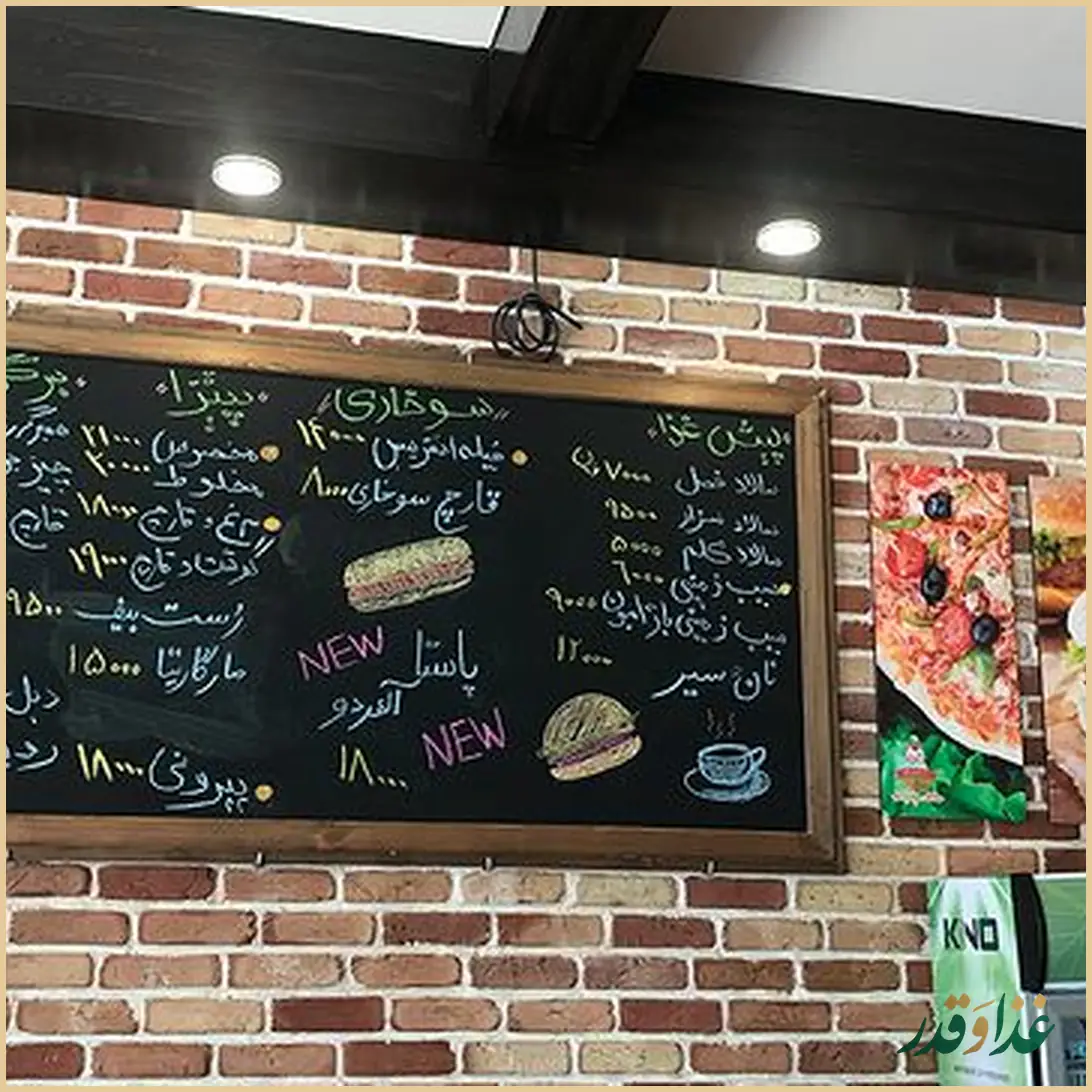 پیش غذا
سالاد فصل ۷۰۰۰
سالاد سزار ۹۵۰۰
سالاد کلم ۵۰۰۰
سیب زمینی ۶۰۰۰
سیب زمینی باژامبون ۹۰۰۰
نان سیر ۱۲۰۰۰
سوخاری
فیله استریپس ۱۴۰۰۰
قارچ سوخاری ۸۰۰۰
NEW
پاستا
آلفردو
NEW
۱۸۰۰۰
پیتزا
مخصوص ۲۱۰۰۰
مخلوط ۲۰۰۰۰
مرغ و قارچ ۱۸۰۰۰
گوشت و قارچ ۱۹۰۰۰
رست بیف ۱۹۵۰۰
مارگاریتا ۱۵۰۰۰
پپرونی ۱۸۰۰۰
KINO
غذا و قدر